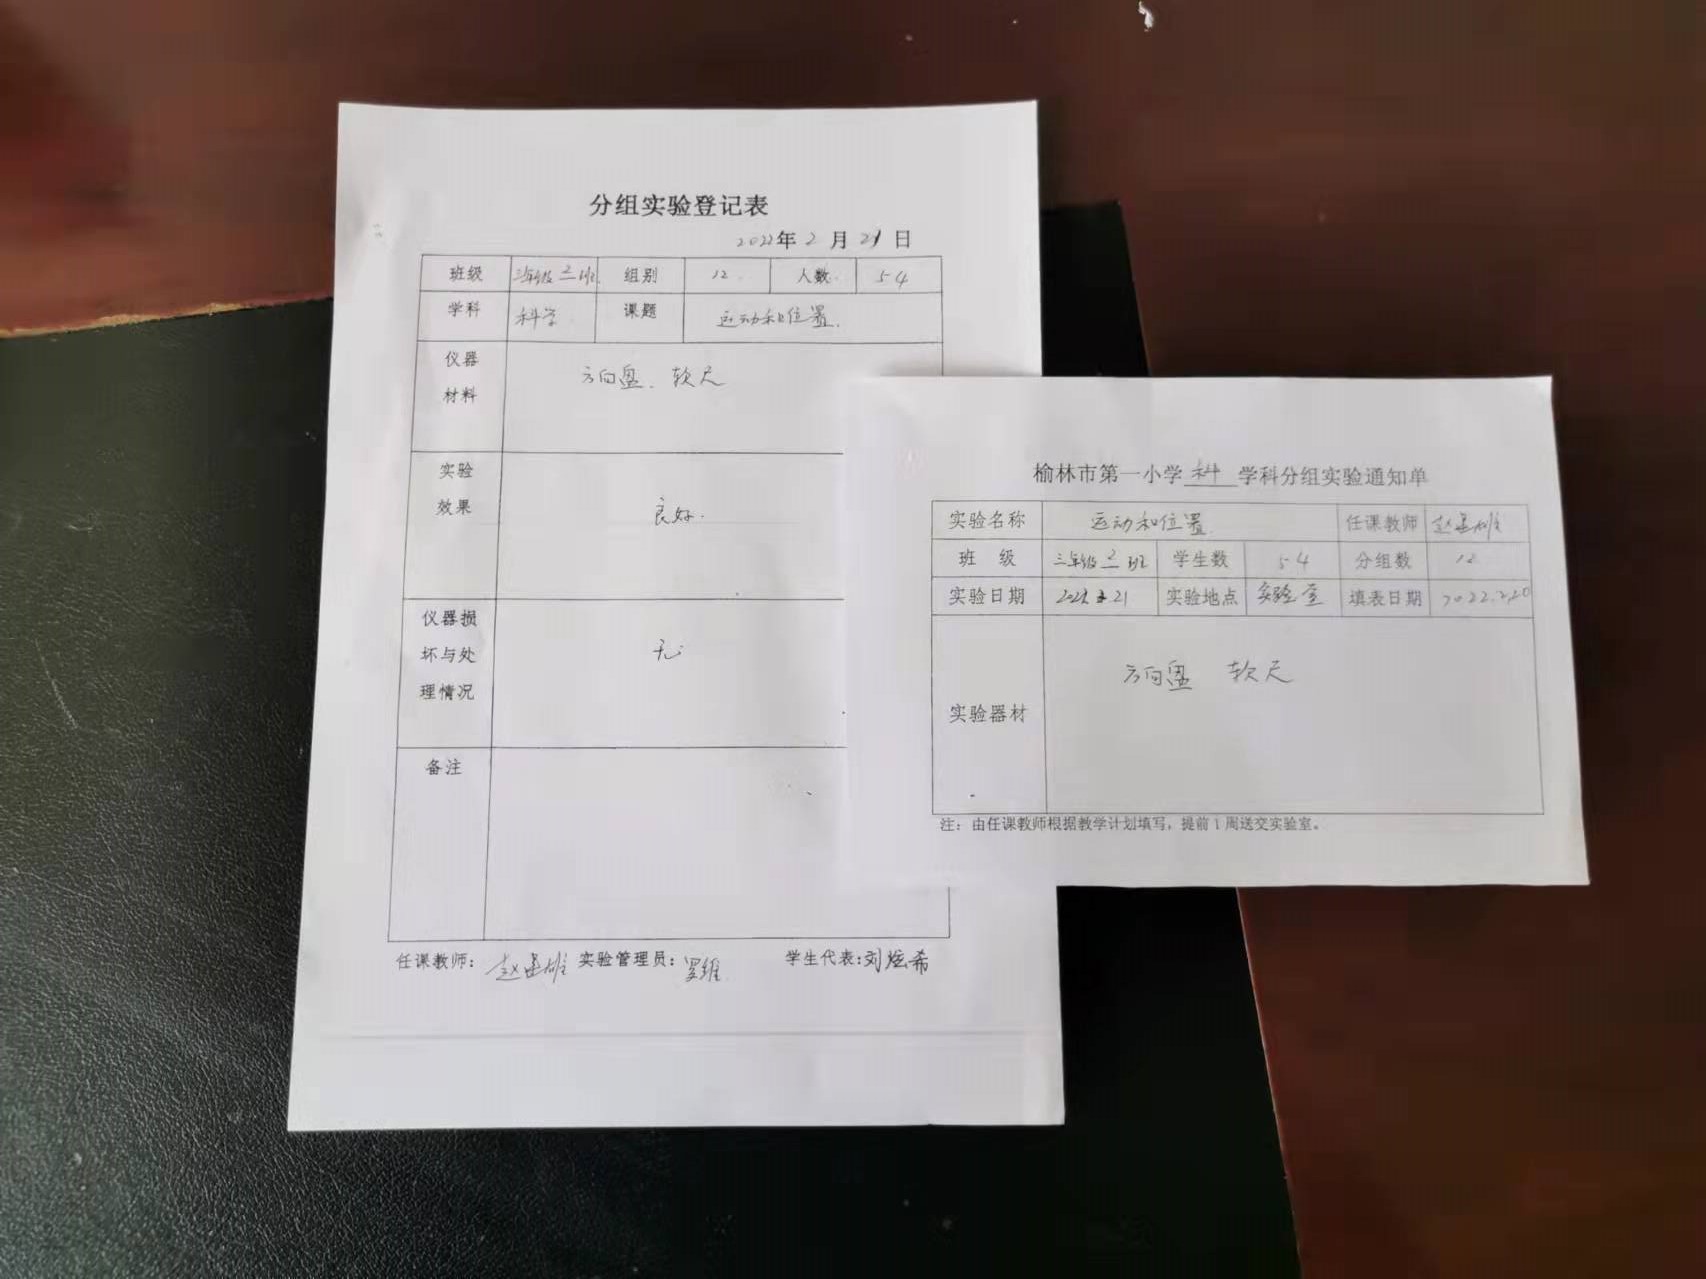 分组实验登记表
2022年2月21日
班级 三年级二班 组别 12 人数 54
学科 科学 课题 运动和位置.
仪器
材料
方向盘、软尺
实验
效果
良好.
仪器损
坏与处
理情况
无
备注
任课教师: 实验管理员: 罗维 学生代表:刘炫希
榆林市第一小学 科 学科分组实验通知单
实验名称 运动和位置 任课教师
班 级 三年级二班 学生数 54 分组数 12
实验日期 2022.2.21 实验地点 实验室 填表日期 2022.2.20
实验器材 方向盘 软尺
注: 由任课教师根据教学计划填写, 提前1周送交实验室。